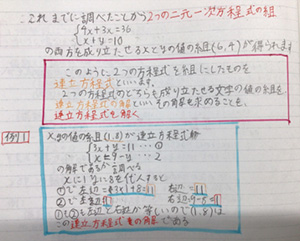 これまでに調べたことから2つの二元一次方程式の組
4x+3x=36
x+y=10
の両方を成り立たせるxとyの値の組(6,4)が得られます
このように2つの方程式を組にしたものを
連立方程式といいます。
2つの方程式のどちらも成り立たせる文字の値の組を、
連立方程式の解といい、その解を求めることを、
連立方程式を解く
例1
x,yの値の組(1,8)が連立方程式
3x+y=11…①
x=y-2…②
の解であるか調べる
xに1、yに8を代入すると
①で左辺=3×1+8=11 右辺=11
②で左辺=1
①②も左辺と右辺が等しいので(1,8)は
この連立方程式の解である